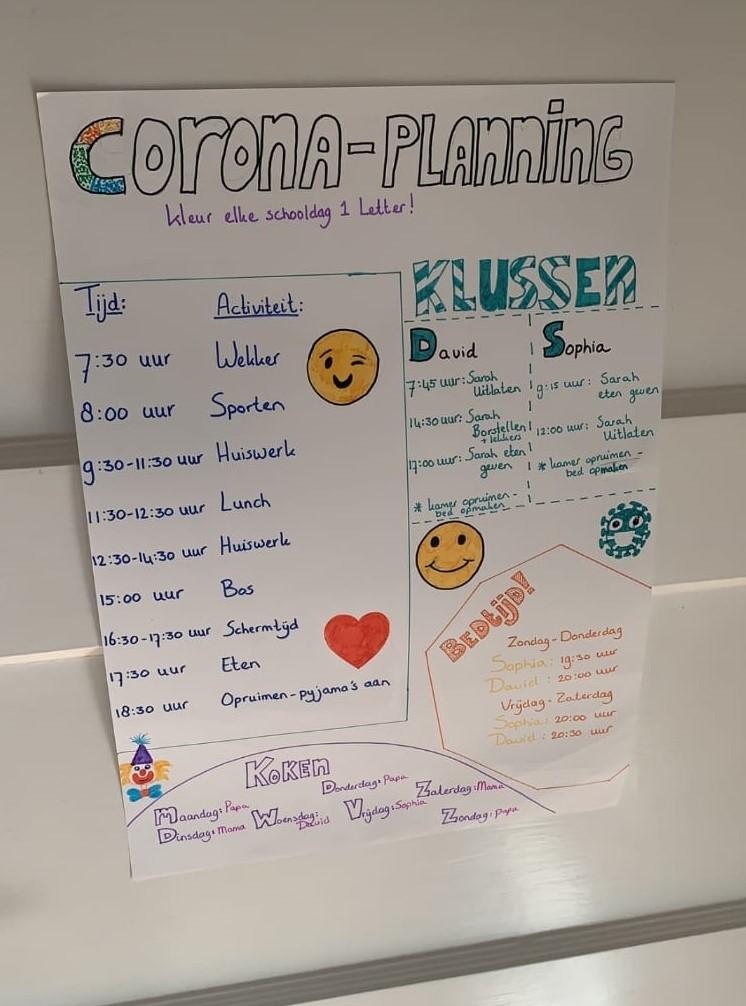 CORONA-PLANNING
kleur elke schooldag 1 Letter!
Tijd: Activiteit:
7:30 uur Wekker
8:00 uur Sporten
9:30-11:30 uur Huiswerk
11:30-12:30 uur Lunch
12:30-14:30 uur Huiswerk
15:00 uur Bos
16:30-17:30 uur Schermtijd
17:30 uur Eten
18:30 uur Opruimen-pyjama's aan
KLUSSEN
David
7:45 uur: Sarah
Uitlaten
14:30 uur: Sarah
Borstellen
+ lekkers
17:00 uur: Sarah eten
geven
* kamer opruimen-
bed opmaken
Sophia
9:15 uur: Sarah
eten geven
12:00 uur: Sarah
Uitlaten
* kamer opruimen-
bed opmaken
BEDTIJD!
Zondag-Donderdag
Sophia: 19:30 uur
David: 20:00 uur
Vrijdag-Zaterdag
Sophia: 20:00 uur
David: 20:30 uur
KOKEN
Maandag: Papa
Dinsdag: Mama
Woensdag:
David
Donderdag: Papa
Vrijdag: Sophia
Zaterdag: Mama
Zondag: papa